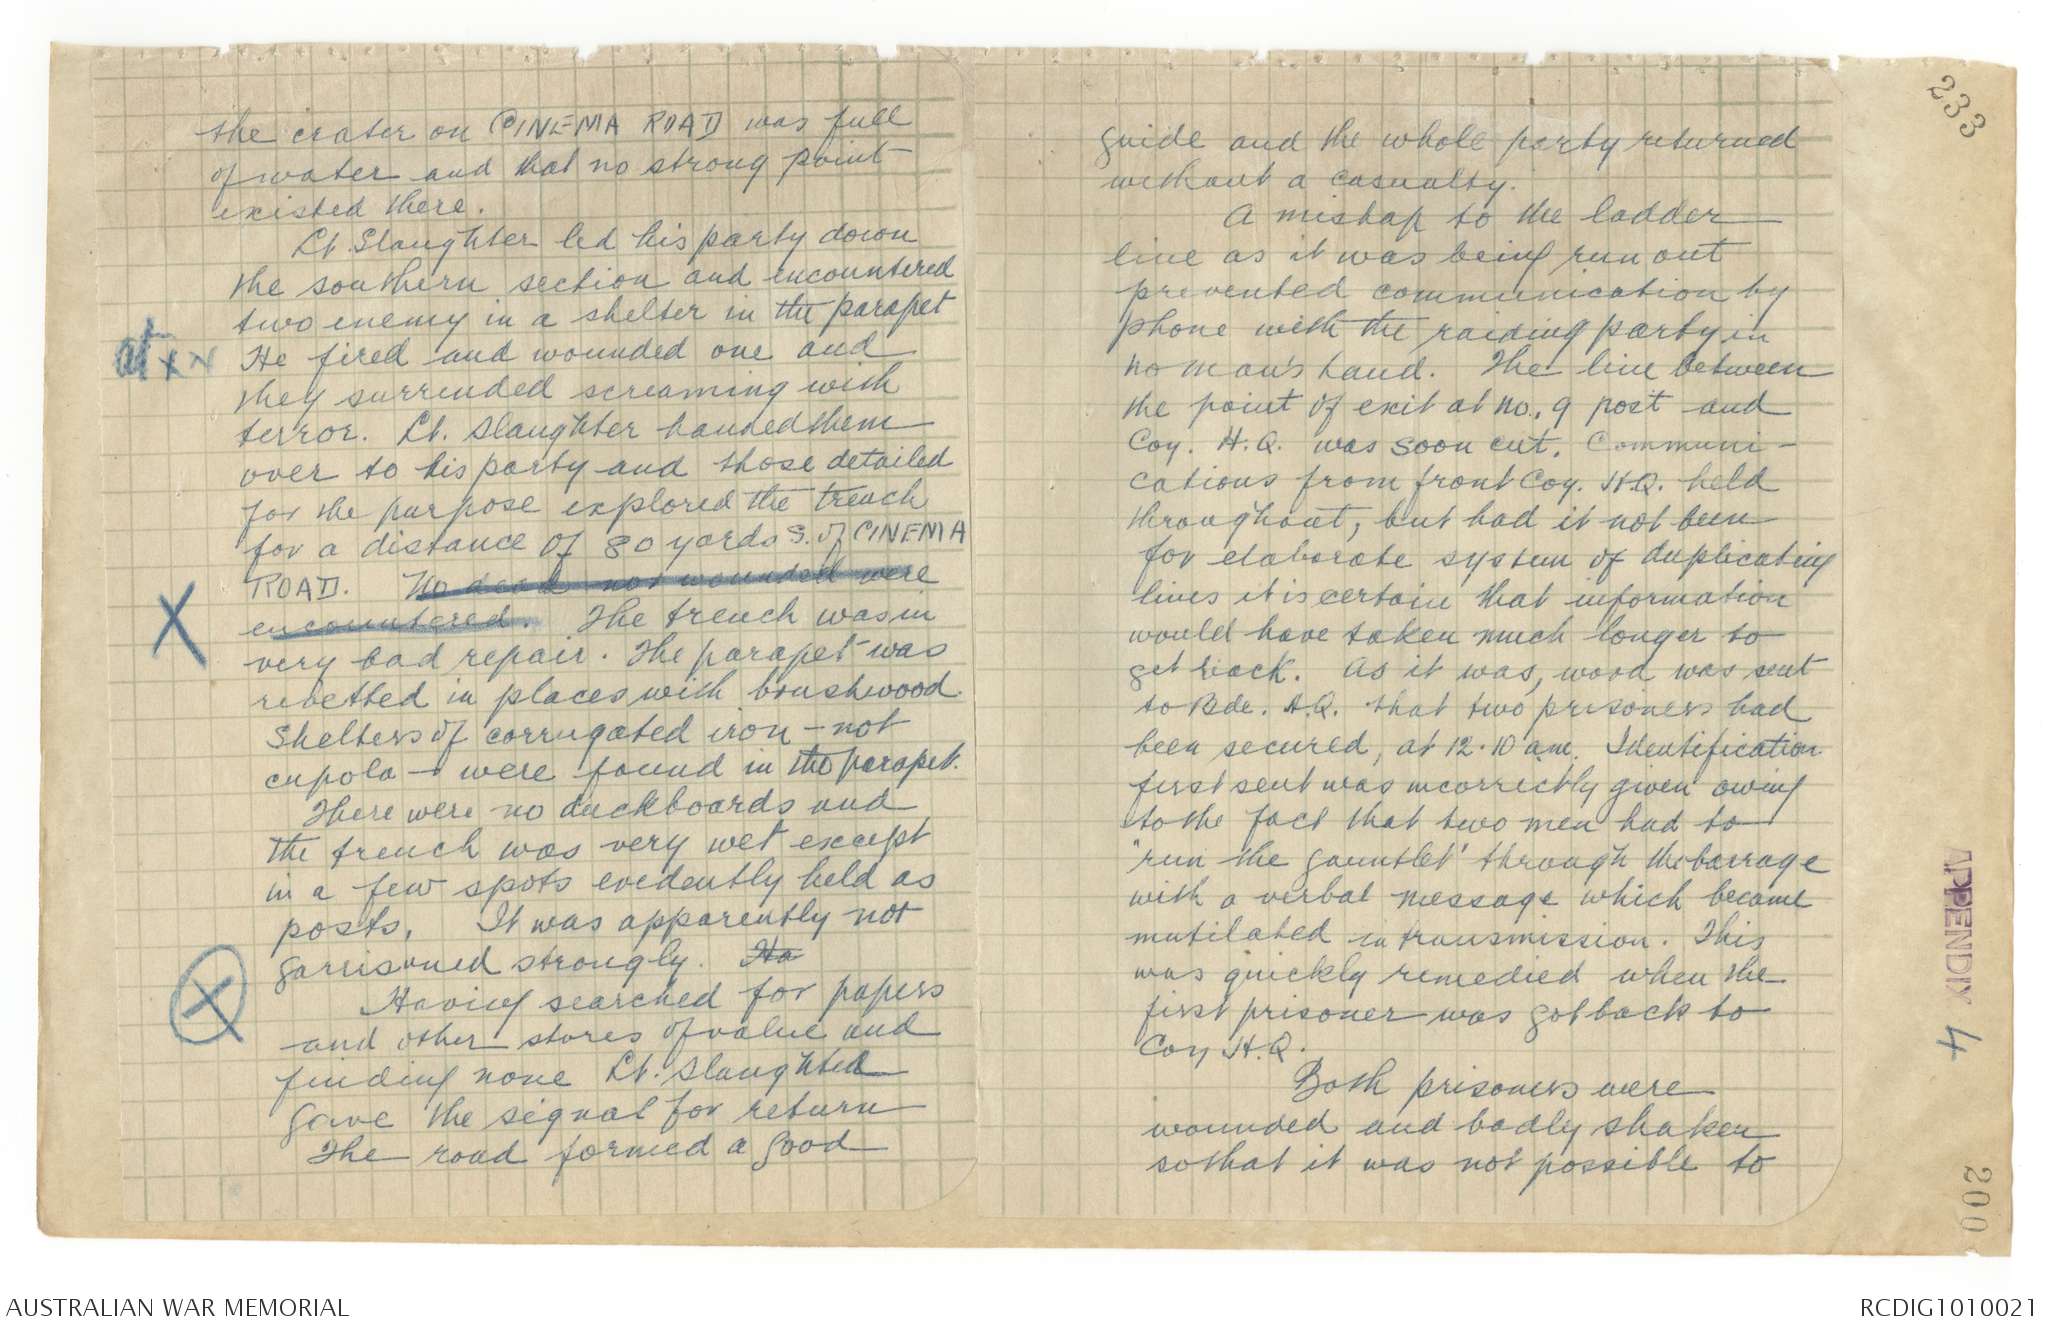 the crater on CINEMA ROAD was full
of water and that no strong point
existed there.
Lt. Slaughter led his party down
the southern section and encountered
two enemy in a shelter in the parapet
at xx
He fired and wounded one and
they surrended screaming with
terror. Lt. Slaughter handed them
over to his party and those detailed
for the purpose explored the trench
for a distance of 80 yards S. of CINEMA
ROAD. No dead nor wounded were
X
encountered. The trench was in
very bad repair. The parapet was
revetted in places with brushwood.
Shelters of corrugated iron - not
cupola - were found in the parapet.
There were no duckboards and
the trench was very wet except
in a few spots evidently held as
posts. It was apparently not
garrisoned strongly. Ha
X
Having searched for papers
and other stores of value and
finding none Lt. Slaughter
gave the signal for return
The road formed a good
233
guide and the whole party returned
without a casualty.
A mishap to the ladder
line as it was being run out
prevented communication by
phone with the raiding party in
no man's land. The line between
the point of exit at no. 9 post and
Coy. H.Q. was soon cut. Communi-
cations from front Coy. H.Q. held
throughout, but had it not been
for elaborate system of duplicating
lines it is certain that information
would have taken much longer to
get back. As it was, word was sent
to Bde. H.Q. that two prisoners had
been secured, at 12.10 am. Identification
first sent was incorrectly given owing
to the fact that two men had to
"run the gauntlet" through the barrage
with a verbal message which became
mutilated in transmission. This
was quickly remedied when the
first prisoner was got back to
Coy H.Q.
Both prisoners were
wounded and badly shaken
so that it was not possible to
APPENDIX 4
200
AUSTRALIAN WAR MEMORIAL
RCDIG1010021